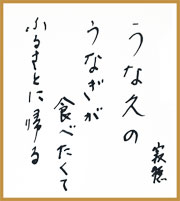 うな久の
うなぎが
食べたくて
ふるさとに帰る
寂聴